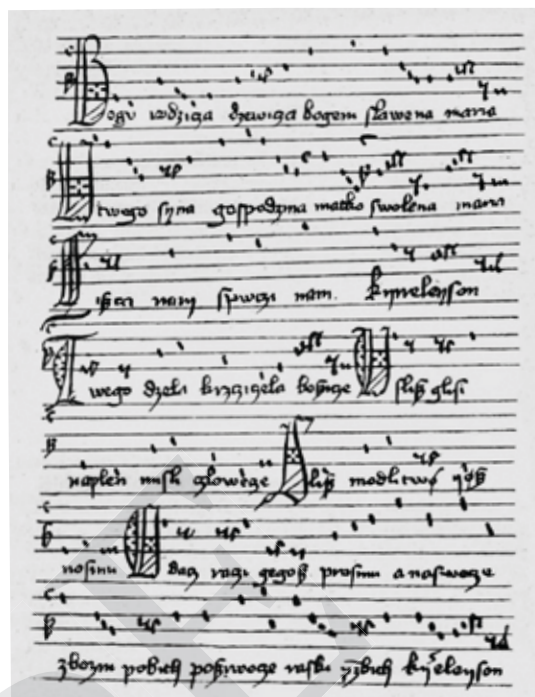 Bogu rodzicza dzewicza bogem slawena maria
U twego syna gospodzina matko swolena maria
nam spwczi nam Kyrieleyson
Twego dzela krzcziczela bozicze Uslisz glosi
naplen misli czlowecze Slisz modlitwo yosz
nosimi dacz raczi gegosz prosimi a naswecze
zbozni pobith poszwocze raski kyrieleyson